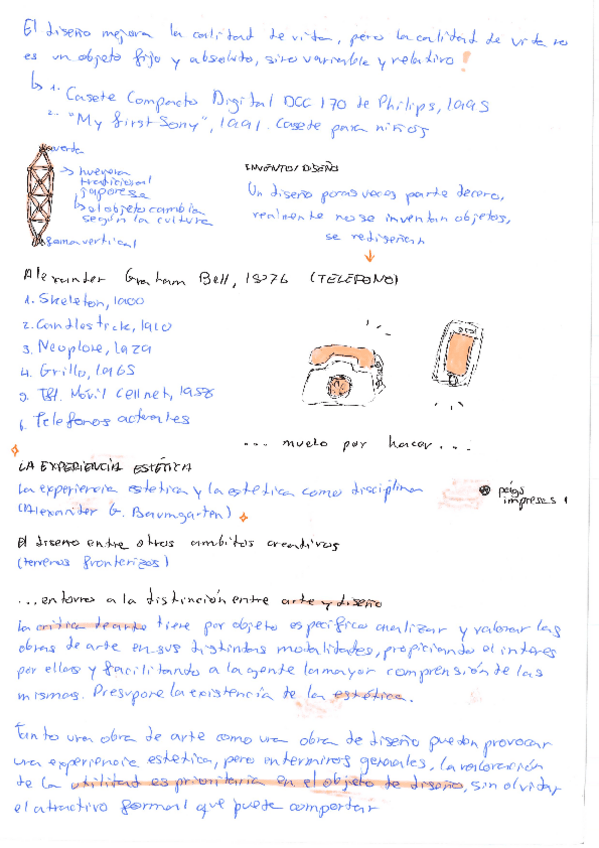 El diseño mejora la calidad de vida, pero la calidad de vida no
es un objeto fijo y absoluto, sino variable y relativo!
↳ 1. Casete Compacto Digital DCC 170 de Philips, 1995
2. "My first Sony", 1991. Casete para niños
cuerda
→ huevera
tradicional
japonesa
↳ el objeto cambia
según la cultura
goma vertical
INVENTO/DISEÑO
Un diseño pocas veces parte de cero,
realmente no se inventan objetos,
se rediseñan
↓
Alexander Graham Bell, (TELÉFONO)
1. Skeleton, 1900
2. Candlestick, 1910
3. Neophone, 1929
4. Grillo, 1965
5. Tel. Móvil Cellnet,
6. Telefonos actuales
... mucho por hacer...
LA EXPERIENCIA ESTÉTICA
La experiencia estetica y la estética como disciplina
(Alexander G. Baumgarten)
págs
impresas
El diseño entre otros ambitos creativos
(terrenos fronterizos)
...entorno a la distinción entre arte y diseño
La crítica de arte tiene por objeto específico analizar y valorar las
obras de arte en sus distintas modalidades, propiciando el interes
por ellas y facilitando a la gente la mayor comprensión de las
mismas. Presupone la existencia de la estética.
Tanto una obra de arte como una obra de diseño pueden provocar
una experiencia estetica, pero en terminos generales, la valoración
de la utilidad es prioritaria en el objeto de diseño, sin olvidar
el atractivo formal que puede comportar